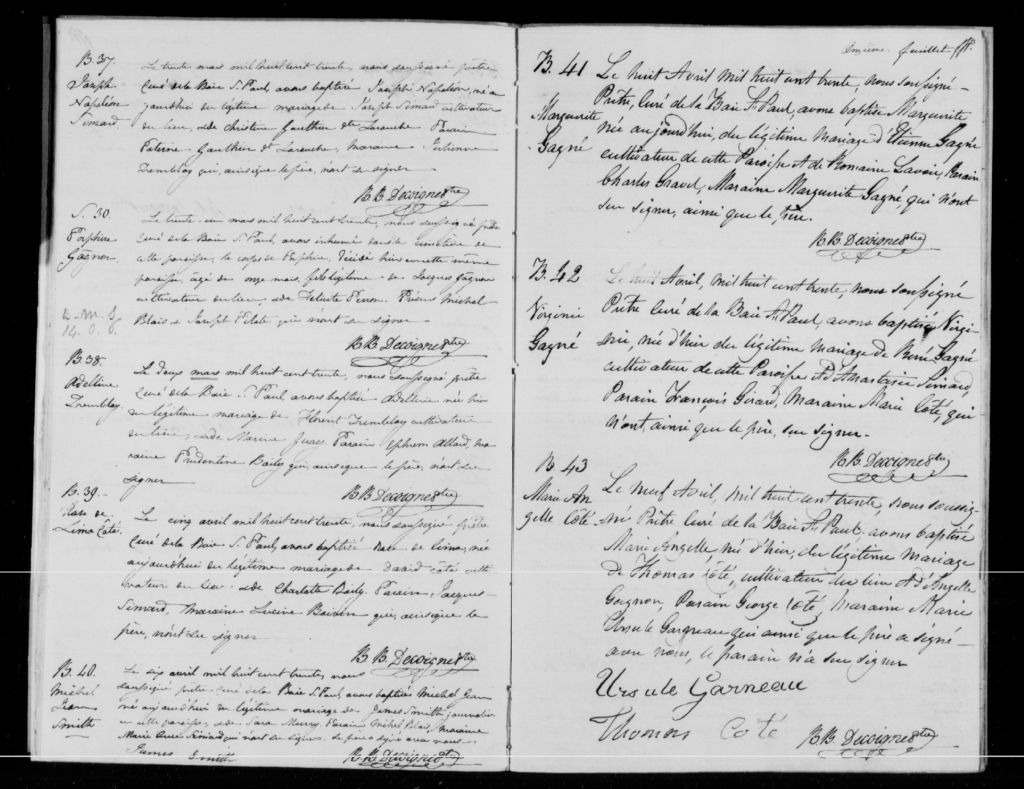 B. 37.
Joseph
Napoléon
Simard.
Le trente mars mil huit cent trente, nous soussigné prêtre
Curé de la Baie S. Paul, avons baptisé Joseph Napoléon, né a
jourdhui du légitime mariage de Joseph Simard cultivateur
du lieu, & de Christine Gauthier dte Larouche. Parain
Paterne Gauthier dt Larouche, maraine Julienne
Tremblay qui, ainsi que le père, n'ont su signer
B. B. Decoigne Ptre
S. 30.
Porphire
Gagnon
Le trente un mars mil huit cent trente, nous soussigné prêtre
Curé de la Baie S. Paul, avons inhumé dans le cimetière de
cette paroisse, le corps de Porphire, décédé hier en cette même
paroisse, âgé de onze mois, fils légitime de Jacques Gagnon
cultivateur du lieu, & de Félicité Perron. Présens Michel
Blais & Joseph Pilote qui n'ont su signer
B. M. S.
14. 0. 6.
B. B. Decoigne Ptre
B. 38.
Tremblay
Le deux mars mil huit cent trente, nous soussigné prêtre
Curé de la Baie S. Paul avons baptisé née hier
du légitime mariage de Florent Tremblay cultivateur
du lieu, & de Parain Ephrem Allard, ma-
raine Prudentine Baily qui, ainsi que le père, n'ont su
signer
B. B. Decoigne Ptre
B. 39.
Rose de
Lima Côté.
Le cinq avril mil huit cent trente, nous soussigné prêtre
Curé de la Baie S. Paul, avons baptisé Rose de Lima, née
aujourdhui du légitime mariage de David Côté culti-
vateur du lieu & de Charlotte Baily Parain Jacques
Simard, Maraine Lucine Boivin qui, ainsi que le
père, n'ont su signer
B. B. Decoigne Ptre
B. 40.
Michel
Jean
Smith
Le six avril mil huit cent trente, nous
soussigné prêtre Curé de la Baie S. Paul, avons baptisé Michel Jean
né aujourd'hui du légitime mariage de James Smith journalier
en cette paroisse, & de Sara Murry. Parain Michel Blais, Maraine
Marie Anne Simard qui n'ont su signer. Le père a signé avec nous
James Smith
B. B. Decoigne Ptre
onzième feuillet
B. 41
Marguerite
Gagné
Le huit Avril mil huit cent trente, nous soussigné
Prêtre, Curé de la Baie St. Paul, avons baptisé Marguerite
née aujourd'hui, du légitime mariage d'Etienne Gagné
cultivateur de cette Paroisse & de Romaine Lavoie, Parain
Charles Gravel, Maraine Marguerite Gagné, qui n'ont
su signer, ainsi que le père.
B. B. Decoigne Ptre
B. 42
Virginie
Gagné
Le huit Avril, mil huit cent trente, nous soussigné
Prêtre Curé de la Baie St. Paul, avons baptisé Virgi-
nie, née d'hier du légitime mariage de René Gagné
cultivateur de cette Paroisse & d'Anastasie Simard,
Parain François Girard, Maraine Marie Côté, qui
n'ont, ainsi que le père, su signer.
B. B. Decoigne Ptre
B. 43
Marie An
gelle Côté
Le neuf Avril, mil huit cent trente, nous soussig-
né Prêtre Curé de la Baie St. Paul, avons baptisé
Marie Angelle, née d'hier, du légitime mariage
de Thomas Côté, cultivateur du lieu & d'Angelle
Gagnon, Parain George Côté, Maraine Marie
Ursule Garneau qui ainsi que le père a signé
avec nous, le parain n'a su signer
Ursule Garneau
Thomas Coté
B. B. Decoigne Ptre